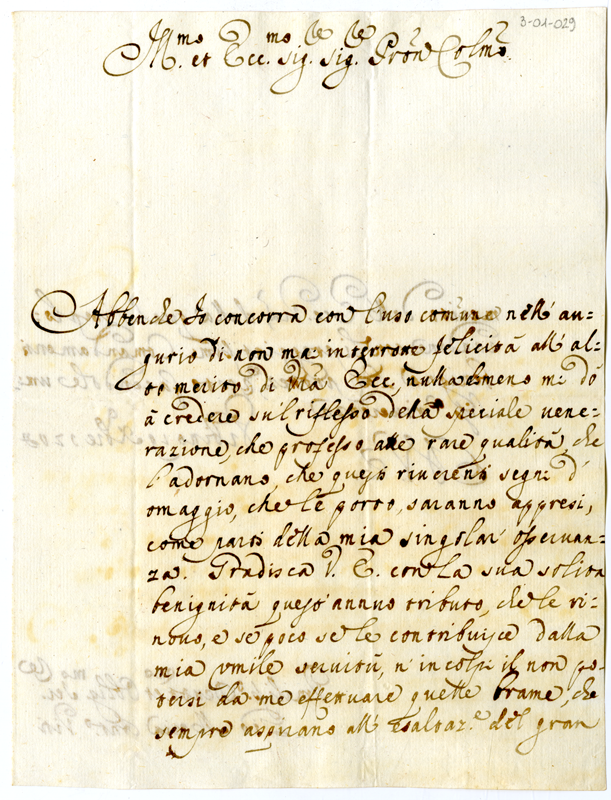 3-01-029
Ill.mo et Ecc.mo Sig.re Sig.re Pron Colmo
Abbenche Io concorra con l'uso comune nell' au=
gurio di non mai interrotte felicità all' al=
to merito di Vra Ecc., nulladimeno mi dò
à credere sul riflesso della speciale vene=
razione, che professo alle rare qualità, che
l'adornano, che questi riuerenti segni d'
omaggio, che le porto, saranno appresi,
come parti della mia singolar osseruan=
za. Gradisca V. E. con la sua solita
benignità quest' annuo tributo, che le ri=
nouo, e se poco se le contribuisce dalla
mia vmile seruitù, n' incolpi il non po=
tersi da me effettuare quelle brame, che
sempre aspirano all' esaltaz.e del gran